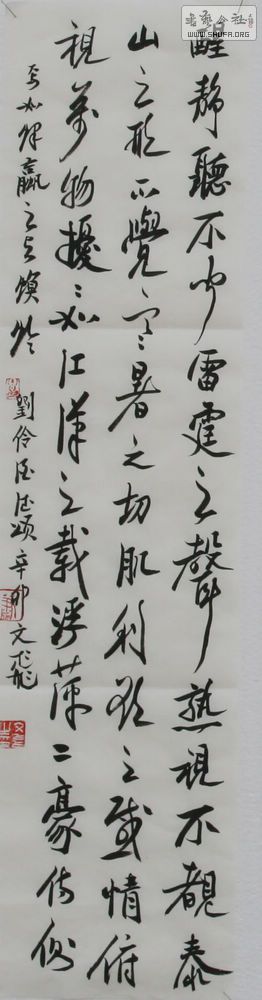 醒静聽不聞雷霆之聲熟視不覩泰
山之形不覺寒暑之切肌利欲之感情俯
視萬物擾々如江漢之載浮萍二豪侍側
焉如蜾蠃之与螟蛉
劉伶酒德頌辛卯文飛
書藝公社
WWW.SHUFA.ORG